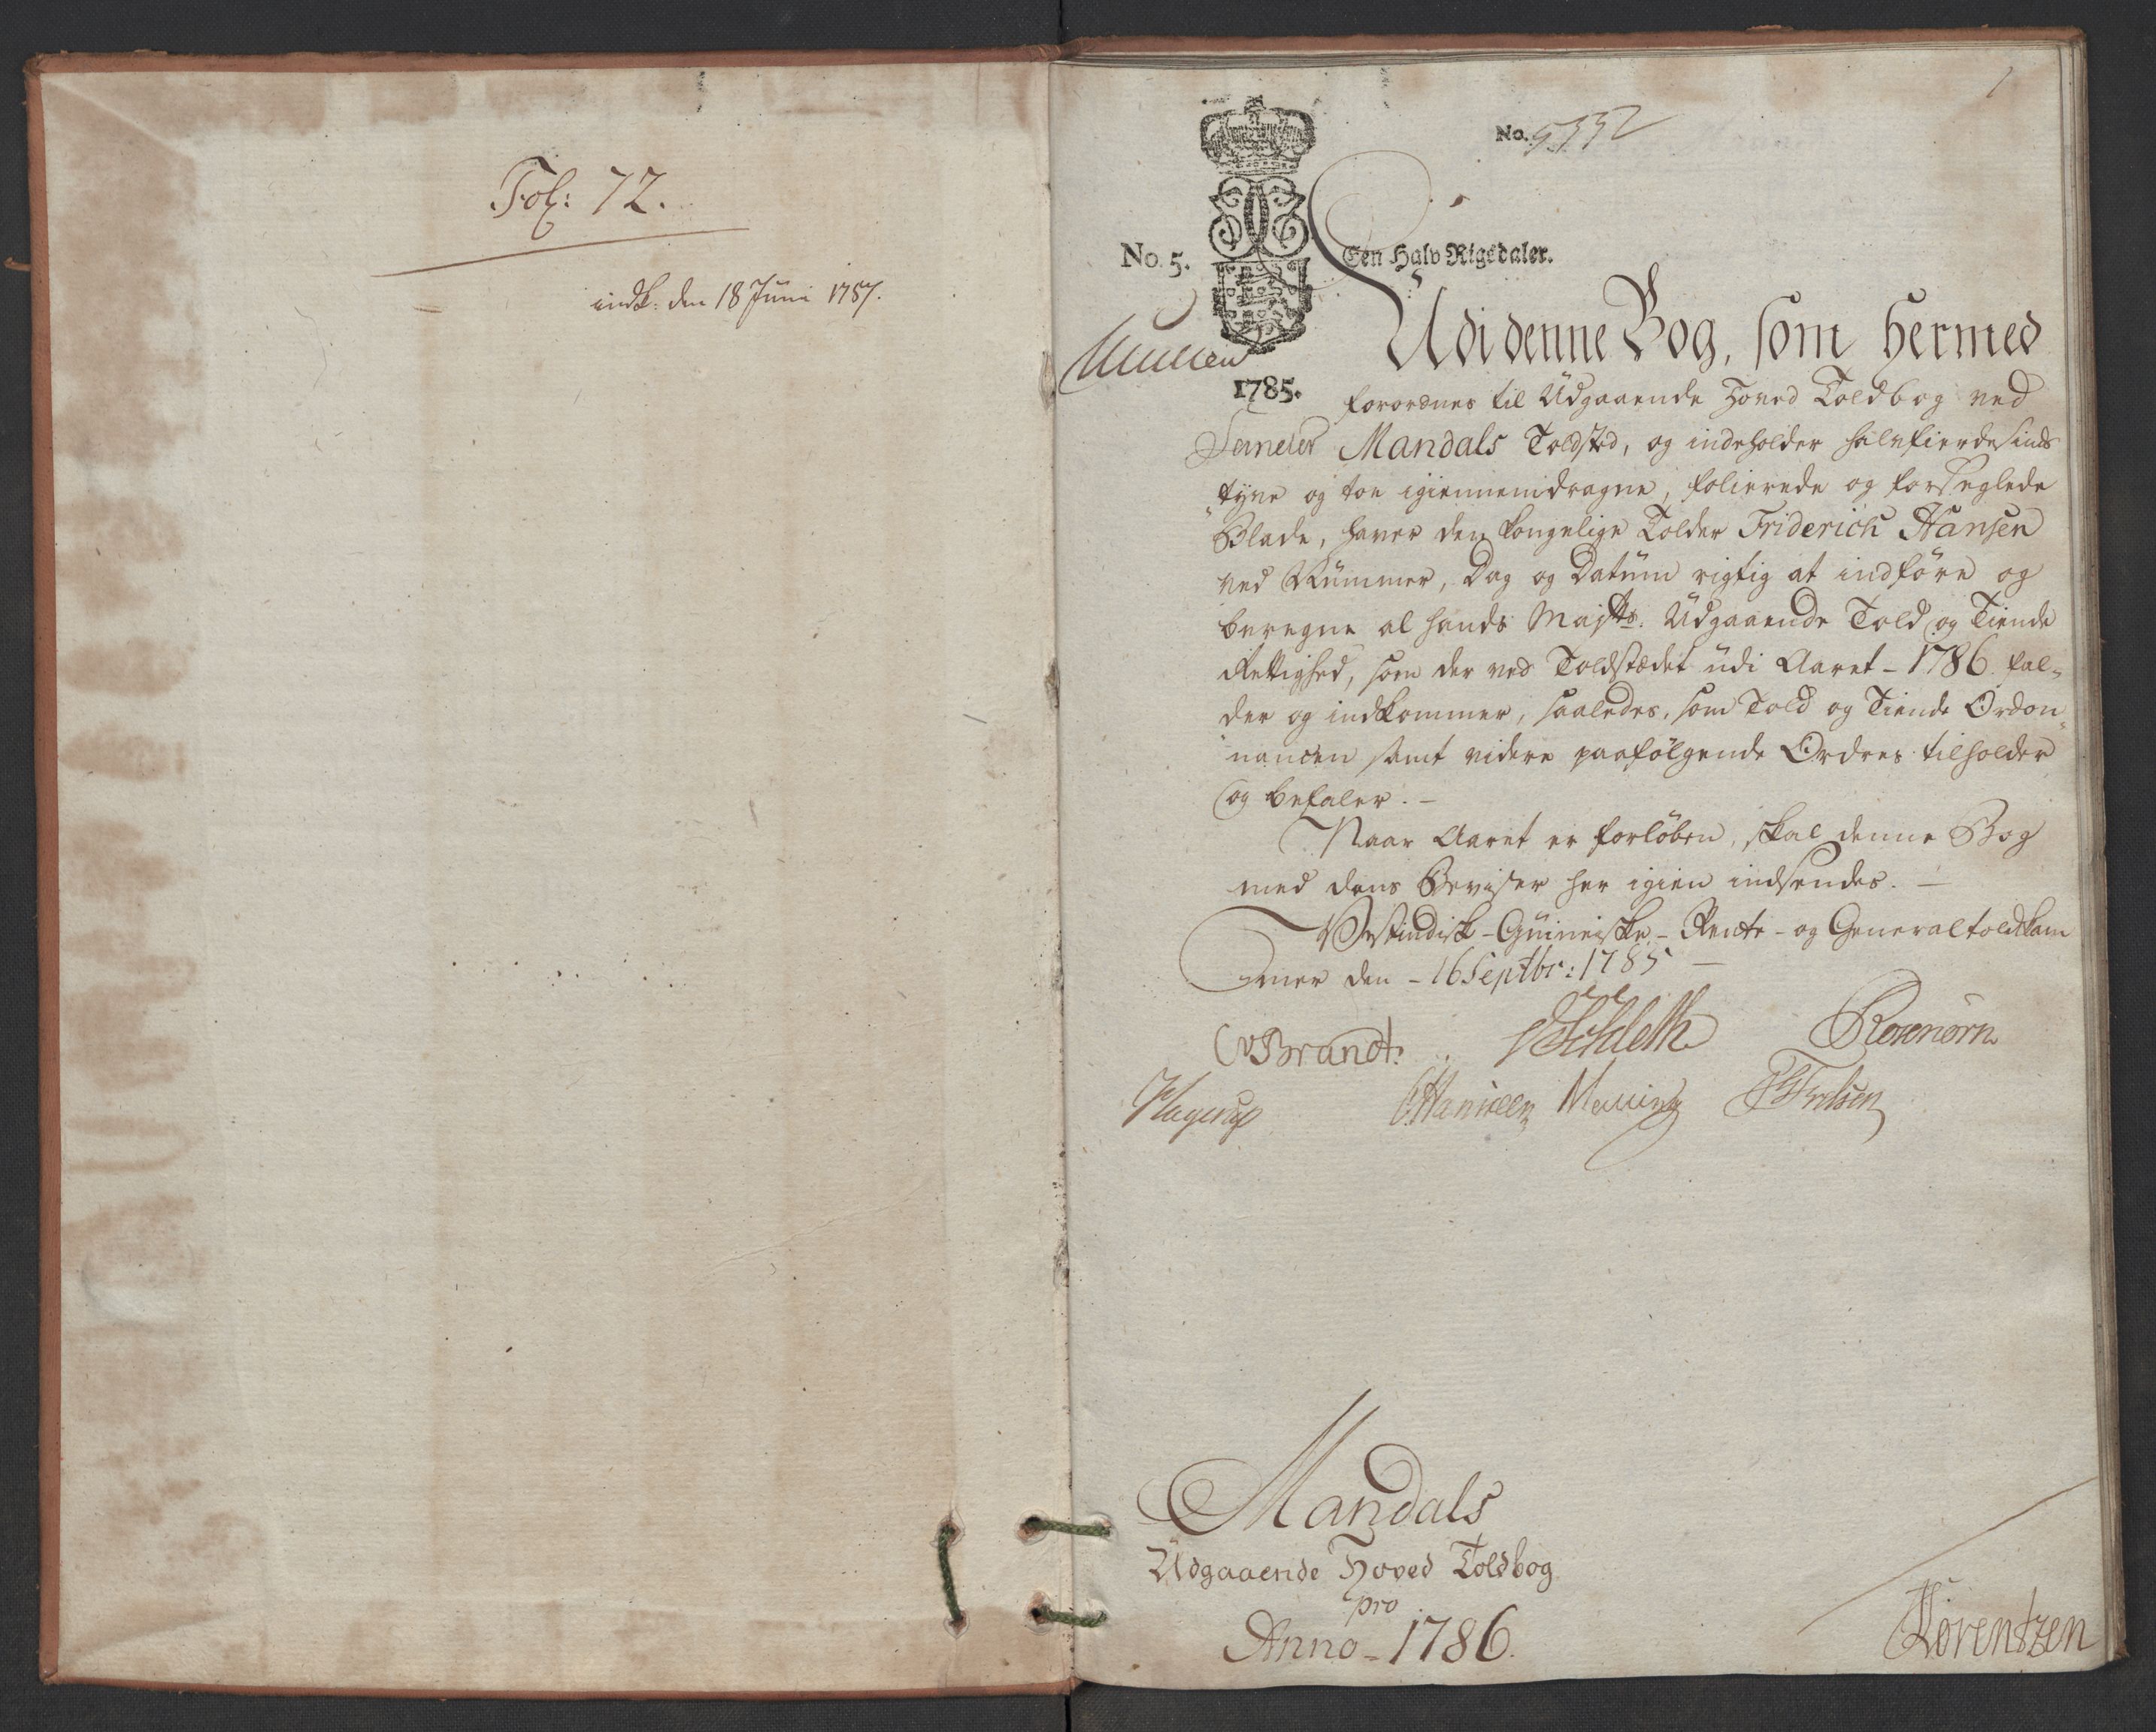 Fol: 72.
indk: den 18 Juni 1787.
1
No. 5352
No. 5.
Een Halv Rigsdaler.
1785.
Udi denne Bog, som hermed
forordnes til Udgaaende Hoved Toldbog ved
Mandals Toldsted, og indeholder halvfierdesinds
tyve og toe igiennemdragne, folierede og forseglede
Blade, haver den kongelige Tolder Friderich Hansen
ved Nummer, Dag og Datum rigtig at indføre og
beregne al hands Majts. Udgaaende Told og Tiende
Rettighed, som der ved Toldstædet udi Aaret - 1786 fal-
der og indkommer, saaledes, som Told og Tiende Ordon-
nancen samt videre paafølgende Ordres tilholder
og befaler. -
Naar Aaret er forløben, skal denne Bog
med dens Beviser her igien indsendes. -
Vestindisk-Guineiske- Rente- og Generaltoldkam
mer den - 16 Septbr: 1785 -
Brandt.
Schleth
Rosenørn
Hagerup
Malling
Lorentzen
Mandals
Udgaaende Hoved Toldbog
pro
Anno - 1786.